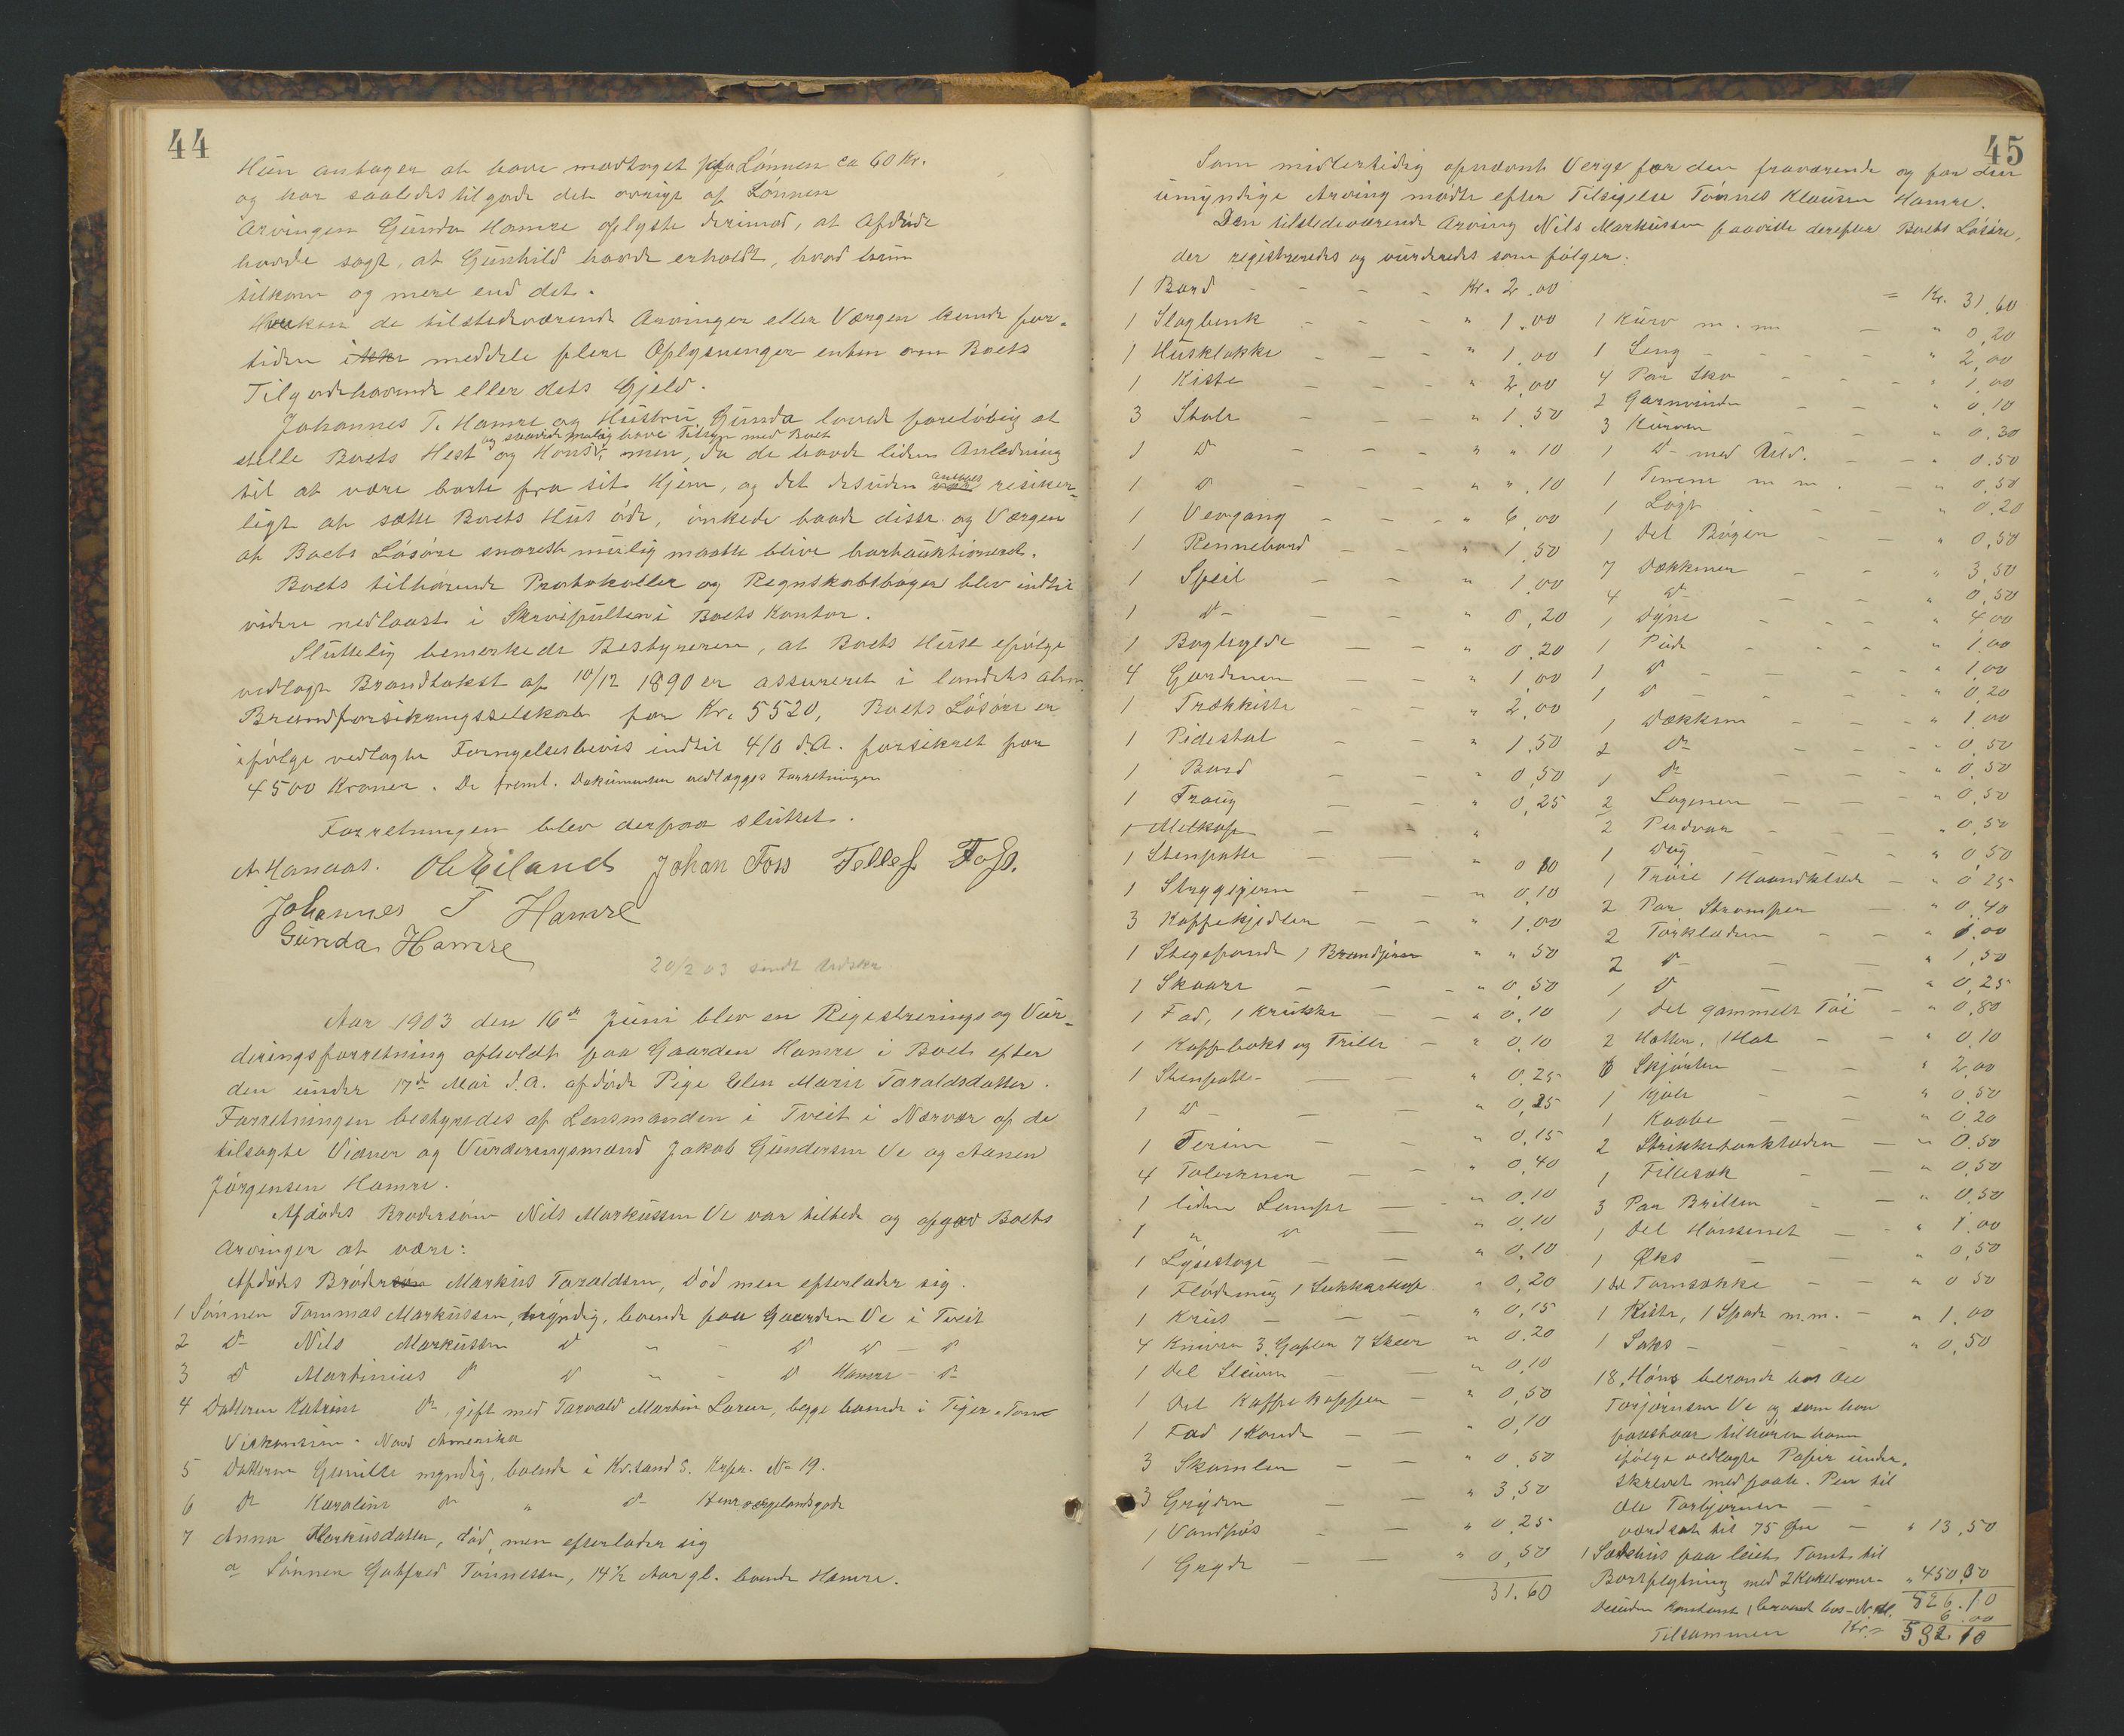 44
Hun antager at have modtaget paa Lønnen ca 60 Kr.
og har saaledes tilgode det øvrige af Lønnen
Arvingen Gunda Hamre oplyste derimod, at Afdøde
havde sagt, at Gunhild havde erholdt, hvad hun
tilkom og mere end det.
Hverken de tilstedeværende Arvinger eller Værgen kunde for-
tiden ikke meddele flere Oplysninger enten om Boets
Tilgodehavende eller dets Gjeld.
Johannes T. Hamre og Hustru Gunda lovede foreløbig at
og saavidt mulig have Tilsyn med Boet
stelle Boets Hest og Høns, men, da de havde liden Anledning
til at være borte fra sit Hjem, og det desuden ansaaes resiker-
ligt at sætte Boets Hus øde, ønskede baade disse og Værgen
at Boets Løsøre snarest mulig maatte blive bortauktioneret.
Boets tilhørende Protokoller og Regnskabsbøger blev indtil
videre nedlaast i Skrivepulten i Boets Kontor.
Sluttelig bemerkede Bestyreren, at Boets Huse ifølge
vedlagte Brandtakst af 10/12 1890 er assureret i landets alm.
Brandforsikringsselskab for Kr. 5520, Boets Løsøre er
ifølge vedlagte Fornyelsesbevis indtil 4/6 d.A. forsikret for
4500 Kroner. De freml. Dokumenter vedlægges Forretningen
Forretningen blev derpaa sluttet.
A. Hanaas. Ol. Eiland Johan Foss Tellef Foss.
Johannes T Hamre
Gunda Hamre
20/2 03 sendt Udskr
Aar 1903 den 16de Juni blev en Registrerings og Vur-
deringsforretning afholdt paa Gaarden Hamre i Boet efter
den under 17de Mai d.A. afdøde Pige Elen Marie Taraldsdatter.
Forretningen bestyredes af Lensmanden i Tveit i Nærvær af de
tilsagte Vidner og Vurderingsmænd Jakob Gundersen Ve og Aanen
Jørgensen Hamre.
Afdødes Brodersøn Nils Markussen Ve var tilstede og opgav Boets
Arvinger at være:
Afdødes Brodersøn Markus Taraldsen, død men efterlader sig.
1 Sønnen Tommas Markussen, myndig, boende paa Gaarden Ve i Tveit
2 do Nils Markussen do " - do do - do
3 do Martinius do do " - do Hamre - do
4 Datteren Katrine do, gift med Tarvald Martin Larsen, begge boende i Tiger-Ton
Viskonsin. Nord Amerika
5 Datteren Gunille myndig, boende i Kr.sand S. Krpr. No 19.
6 do Karoline do " do Henr. Wergelandsgade
7 Anna Markusdatter, død, men efterlader sig
a Sønnen Gotfred Tønnessen, 14½ Aar gl. boende Hamre.
45
Som midlertidig opnævnt Verge for den fraværende og for den
umyndige Arving mødte efter Tilsigelse Tønnes Klausen Hamre.
Den tilstedeværende Arving Nils Markussen paaviste derefter Boets Løsøre,
der registreredes og vurderedes som følger:
1 Bord - - - - Kr. 2.00
1 Slagbenk - - - " 1.00
1 Husklokke - - - " 1.00
1 Kiste - - - " 2.00
3 Stole - - - " 1.50
1 do " " 10
1 do - " ". 10
1 Vevgang - - - " 6.00
1 Rennebord - - " 1.50
1 Speil - - " 1.00
1 do - - - " 0,20
1 Boghylde - - " 0.20
4 Gardiner - - " 1.00
1 Trækkiste - - " 2.00
1 Pidestal - - " 1.50
1 Bord - - " 0,50
1 Traug - - " 0,25
1 Melkop - - "
1 Stenpotte - - " 0 10
1 Strygejern - - " 0,10
3 Kaffekjedler - - " 1,00
1 Stegepande 1 Brandjern " " 50
1 Skaare - - - " 0,50
1 Fad, 1 Krukke - - " 0,10
1 Kaffeboks og Trille - " 0,10
1 Stenpotte - - - " 0.25
1 do - - - " 0,25
1 Terin - - " 0,15
4 Tolerkner - - " 0,40
1 liden Lampe - - " 0.10
1 " do - " 0.10
1 Lysestage - - " 0.10
1 Flødemug 1 Sukkerkop " 0,20
1 Krus - - - " 0,15
4 Kniver 3 Gafler 7 Skeer " 0.20
1 del Steiner - - " 0,10
1 Del Kaffekopper - " 0,50
1 Fad 1 Kande - - " 0,10
3 Skamler - - " 0.50
3 Gryder - - " 3,50
1 Vandhøs - - " 0.25
1 Gryde - - " 0,50
31.60
= Kr. 31,60
1 Kurv m. m - " 0,20
1 Seng - - - - " 2,00
4 Par Sko - - - " 1,00
2 Garnvinder - - " 0,10
3 Kurver - - " 0.30
1 do med Uld. - - " 0.50
1 m m. - " 0,50
1 Løgt - - - " 0.20
1 del Bøger - - " 0,50
7 Dækkener - - " 3,50
4 do - - " 0,50
1 Dyne - - - " 4,00
1 Pude - - - " 1.00
1 do - - - " 1,00
1 do - - - " 0,20
1 Dækken - - - " 1.00
2 do - - - " 0,50
1 do - - - " 0,50
2 Lagener - - - " 0,50
2 Pudvar - - - " 0,50
1 Dug - - - " 0 50
1 Trøie 1 Haandklæde - " 0 25
2 Par Strømper - " 0,40
2 Tørklæder - - " 1.00
2 do - - - " 1,50
1 do - - " 0,25
1 del gammelt Tøi - " 0,80
2 Hatter, 1 Hat - - " 0,10
6 Skjørter - - " 2,00
1 Kjole - - " 0,50
1 Kaabe - - " 0,20
2 Strikketørklæder - " 0.50
1 Fillesæk - - " 0,50
3 Par Briller - - " 0,50
1 del Hønsenet - - " 1.00
1 Øks - - " 0,50
1 del Tomsække - - " 0 50
1 Kiste, 1 Spade m.m. - " 1.00
1 Saks - - - " 0,50
18 Høns beroende hos Ole
Torjørnsen Ve og som han
paastaar tilhører ham
ifølge vedlagte Papir under-
skrevet med paah. Pen til
Ole Torbjørnsen - -
værdsat til 75 Øre - " 13,50
1 paa leiet Tomt til
Bortflytning med 2 Kakelovner - " 450,00
526.10
Desuden Kontant, beroende hos N. M. 6.00
Tilsammen Kr. = 532.10